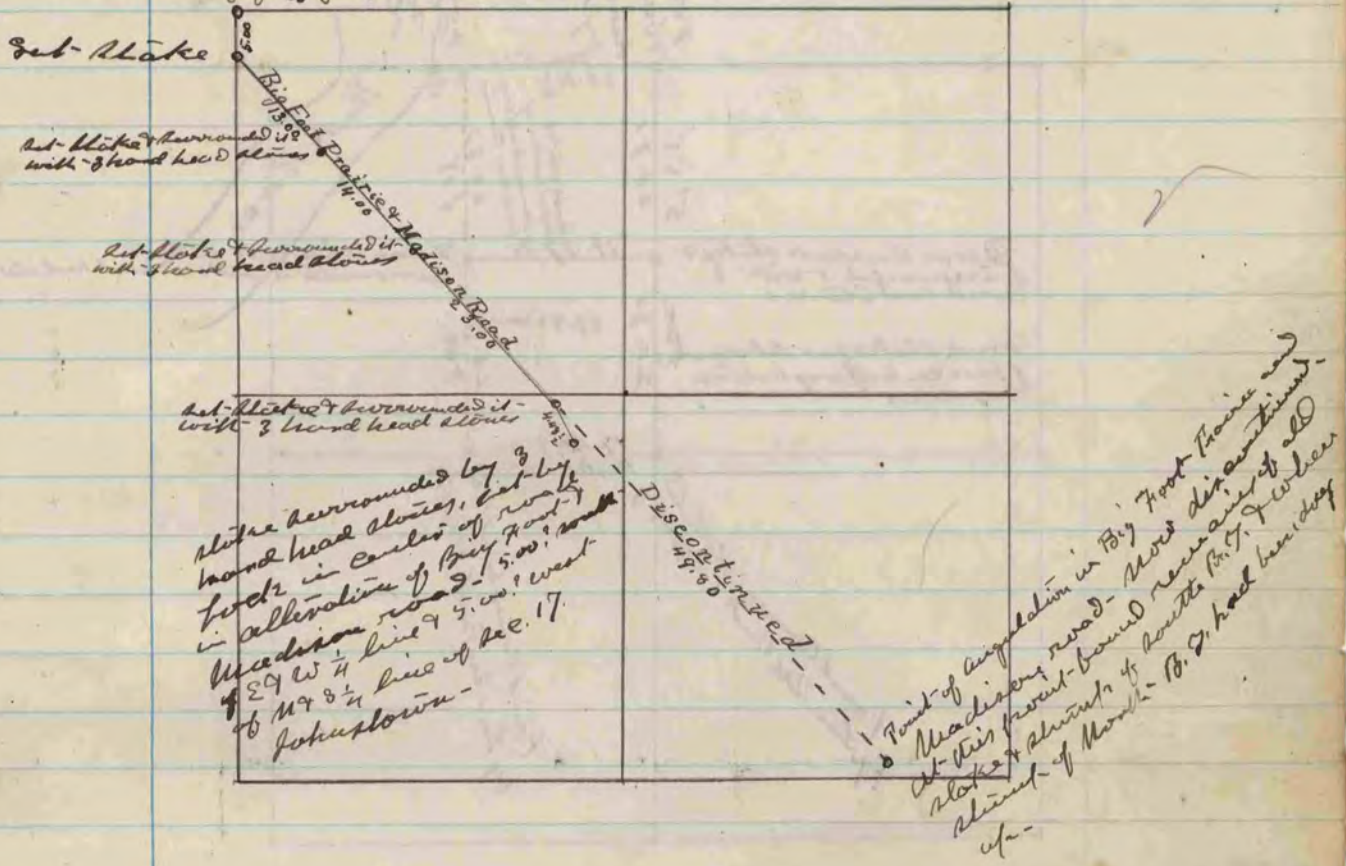 5.00
Set-Stake
Big Foot Prairie & Madison Road
13.00
set-Stake & surrounded it
with 3 hand head stones
14.00
set-Stake & surrounded it-
with 3 hand head stones
23.00
set-Stake & surrounded it-
with 3 hand head stones
4.09½
stake surrounded by 3
hand head stones, set-by
in center of road
in alteration of Big Foot-&
Madison road- 5.00! south-
of E & W ¼ line & 5.00! west
of N & S ¼ line of Sec. 17.
Johnstown-
Discontinued
49.80
Point-of angulation in Big Foot-Prairie and
Madison road- now discontinued-
at-this point-found remains of old
stake & stump of south B.T. & where
stump-of North-B.T. had been dug
up-